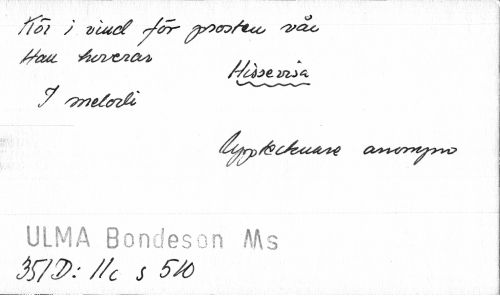 Kör i vind för prosten vår
Han hoverar
Hissevisa
1 melodi
Upptecknare anonym
ULMA Bondeson Ms
351D: 11c s 510